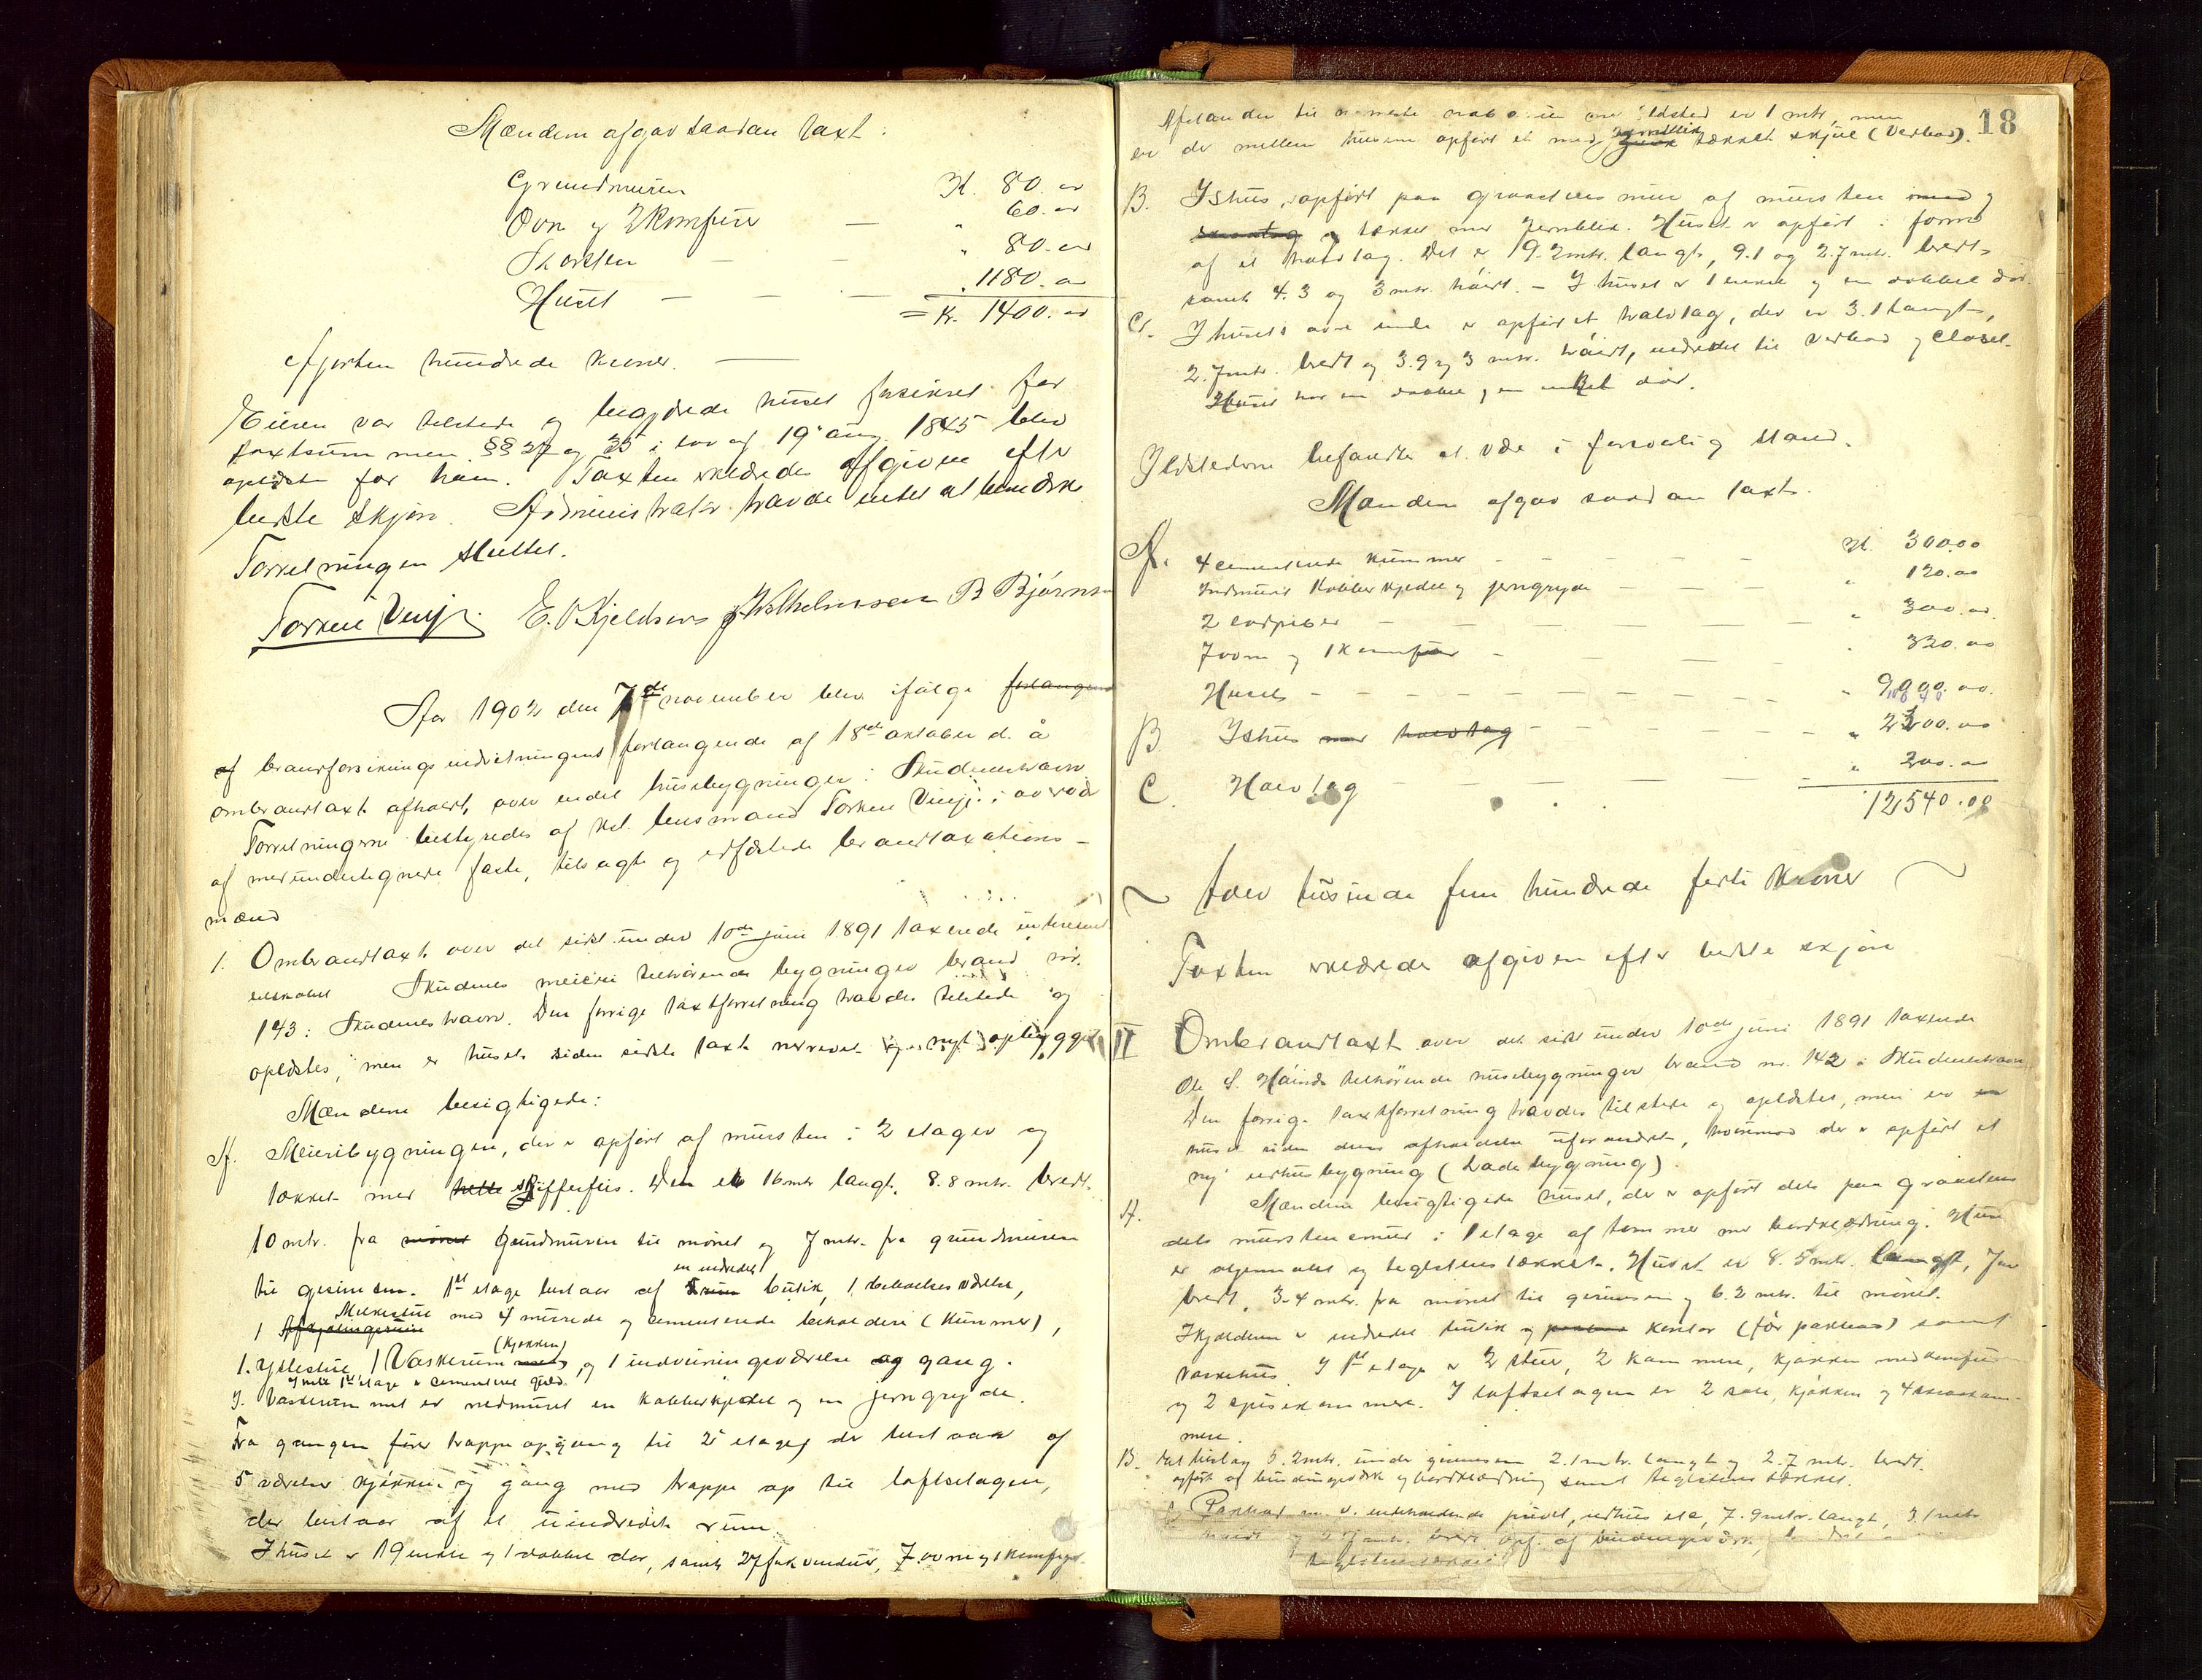 Mændene afgav saadan taxt:
Grundmuren Kr. 80.00
Ovn og 2 Komfurer — " 60.00
Skorsten — — " 80.00
Huset — — — " 1180.00
= Kr. 1400.00
Fjorten hundrede kroner. —
Eieren var tilstede og begjærede huset forsikret for
taxtsummen. §§ 27 og 35 i lov af 19 aug. 1845 blev
oplæste for ham. Taxten erklæredes afgiven efter
bedste skjøn. Administrator havde intet at bemærke
Forretningen sluttet.
Torkell Vinje. E. O Kjeldsen J Wilhelmsen B Bjørnsen
Aar 1902 den 7de november blev ifølge forlangende
af brandforsikringsindretningens forlangende af 18de oktober d. å
ombrandtaxt afholdt over endel husebygninger i Skudeneshavn
Forretningerne bestyredes af kst. lensmand Torkell Vinje i overvær
af medundertegnede faste, tilsagte og edfæstede brandtaxations-
mænd
1. Ombrandtaxt over det sidst under 10de juni 1891 taxerede interessent
selskabet Skudenes meieri tilhørende bygninger brand nr.
143 i Skudeneshavn. Den forrige taxtforretning havdes tilstede og
oplæstes, men er husets siden sidste taxt nedrevet og nyt opbygget
Mændene besigtigede:
A. Meieribygningen, der er opført af mursten i 2 etager og
tækket med helle skifferfeis. Den er 16 mtr langt, 8.8 mtr. bredt.
10 mtr. fra mønet Grundmuren til mønet og 7 mtr. fra grundmuren
en indredet
til gesimsen. 1st etage bestaar af butik, 1 beboelsesværelse,
Melkestue
1 Afkjølingsrum med 4 murede og cementerede beholdere (kummer),
(kjøkken)
1. Ystestue, 1 Vaskerum med, og 1 indveiningsværelse og gang.
I hele 1st etage er cementeret gulv
I. Vaskerummet er nedmuret en kobberkjedel og en jerngryde.
Fra gangen fører trappeopgang til 2' etage, der bestaar af
5 værelser kjøkken og gang med trappe op til loftsetagen,
der bestaar af et uindredet rum.
I huset er 19 enkle og 1 dobbel dør, samt 27 fak vinduer, 7 ovne og 1 komfyr.
18
Afstanden til nærmeste nabo en ildsted er 1 mtr, men
jernblik
er der mellem husene opført et med tækket skjul (Vedbod).
B. Ishus, opført paa graastens mur af mursten med
og tækket med jernblik. Huset er opført i form
af et halvtag. Det er 19.2 mtr. langt, 9.1 og 2.7 mtr. bredt,
samt 4.3 og 3 mtr. høidt. — I huset er 1 enkel og en dobbel dør.
C. I husets øvre ende er opført et halvtag, der er 3.1 langt,
2.7 mtr. bredt og 3.9 og 3 mtr. høidt, indredet til vedbod og closet.
Huset har en dobbel og en enkel dør.
Ildstederne befandtes at være i forsvarlig stand.
Mændene afgav saadan taxt.
A. 4 cementerede kummer — Kr. 300.00
Indmuret Kobberkjedel og jerngryde — " 120.00
2 lodpiber — " 300.00
7 ovne og 1 Komfur — " 320.00
Huset — " 9000.00.
B Ishus med halvtag — " 2200.00
C. Halvtag — " 300.00
12,540.00
~ tolv tusinde fem hundrede førti kroner ~
Taxten erklæredes afgiven efter bedste skjøn
II Ombrandtaxt over det sidst under 10de juni 1891 taxerede
Ole S. Høinds tilhørende husebygninger brand nr. 142 i Skudeneshavn
Den forrige taxtforretning havdes tilstede og oplæstes, men er
huset siden dens afholdelse uforandret, hvorimod der er opført et
ny udhusbygning (Ladebygning).
A. Mændene besigtigede huset, der er opført dels paa graastens
dels murstensmur i 1 etage af tømmer med bordklædning. Huset
er oljemalet og teglstenstækket. Huset er 8.5 mtr. langt, 7
bredt, 3.4 mtr. fra mønet til gesimsen og 6.2 mtr. til mønet.
I kjælderen er indredet butik og kontor (før pakbod) samt
vaskehus. I 1st etage er 2 stuer, 2 kammere, kjøkken med komfur
og 2 spisekammere. I loftsetagen er 2 sale, kjøkken og 4 sovekam-
mere.
B. Halvtag 5.2 mtr. under gesimsen 2.1 mtr. langt og 2.7 mtr. bredt.
opført af bindingsværk og bordklædning samt teglstens tækket.
C Pakbod m. v. indeholdende privet, udhus etc, 7.9 mtr. langt, 3.1 mtr
høidt og 2.7 mtr. bredt opf. af bindingsværk,
teglstenstækket